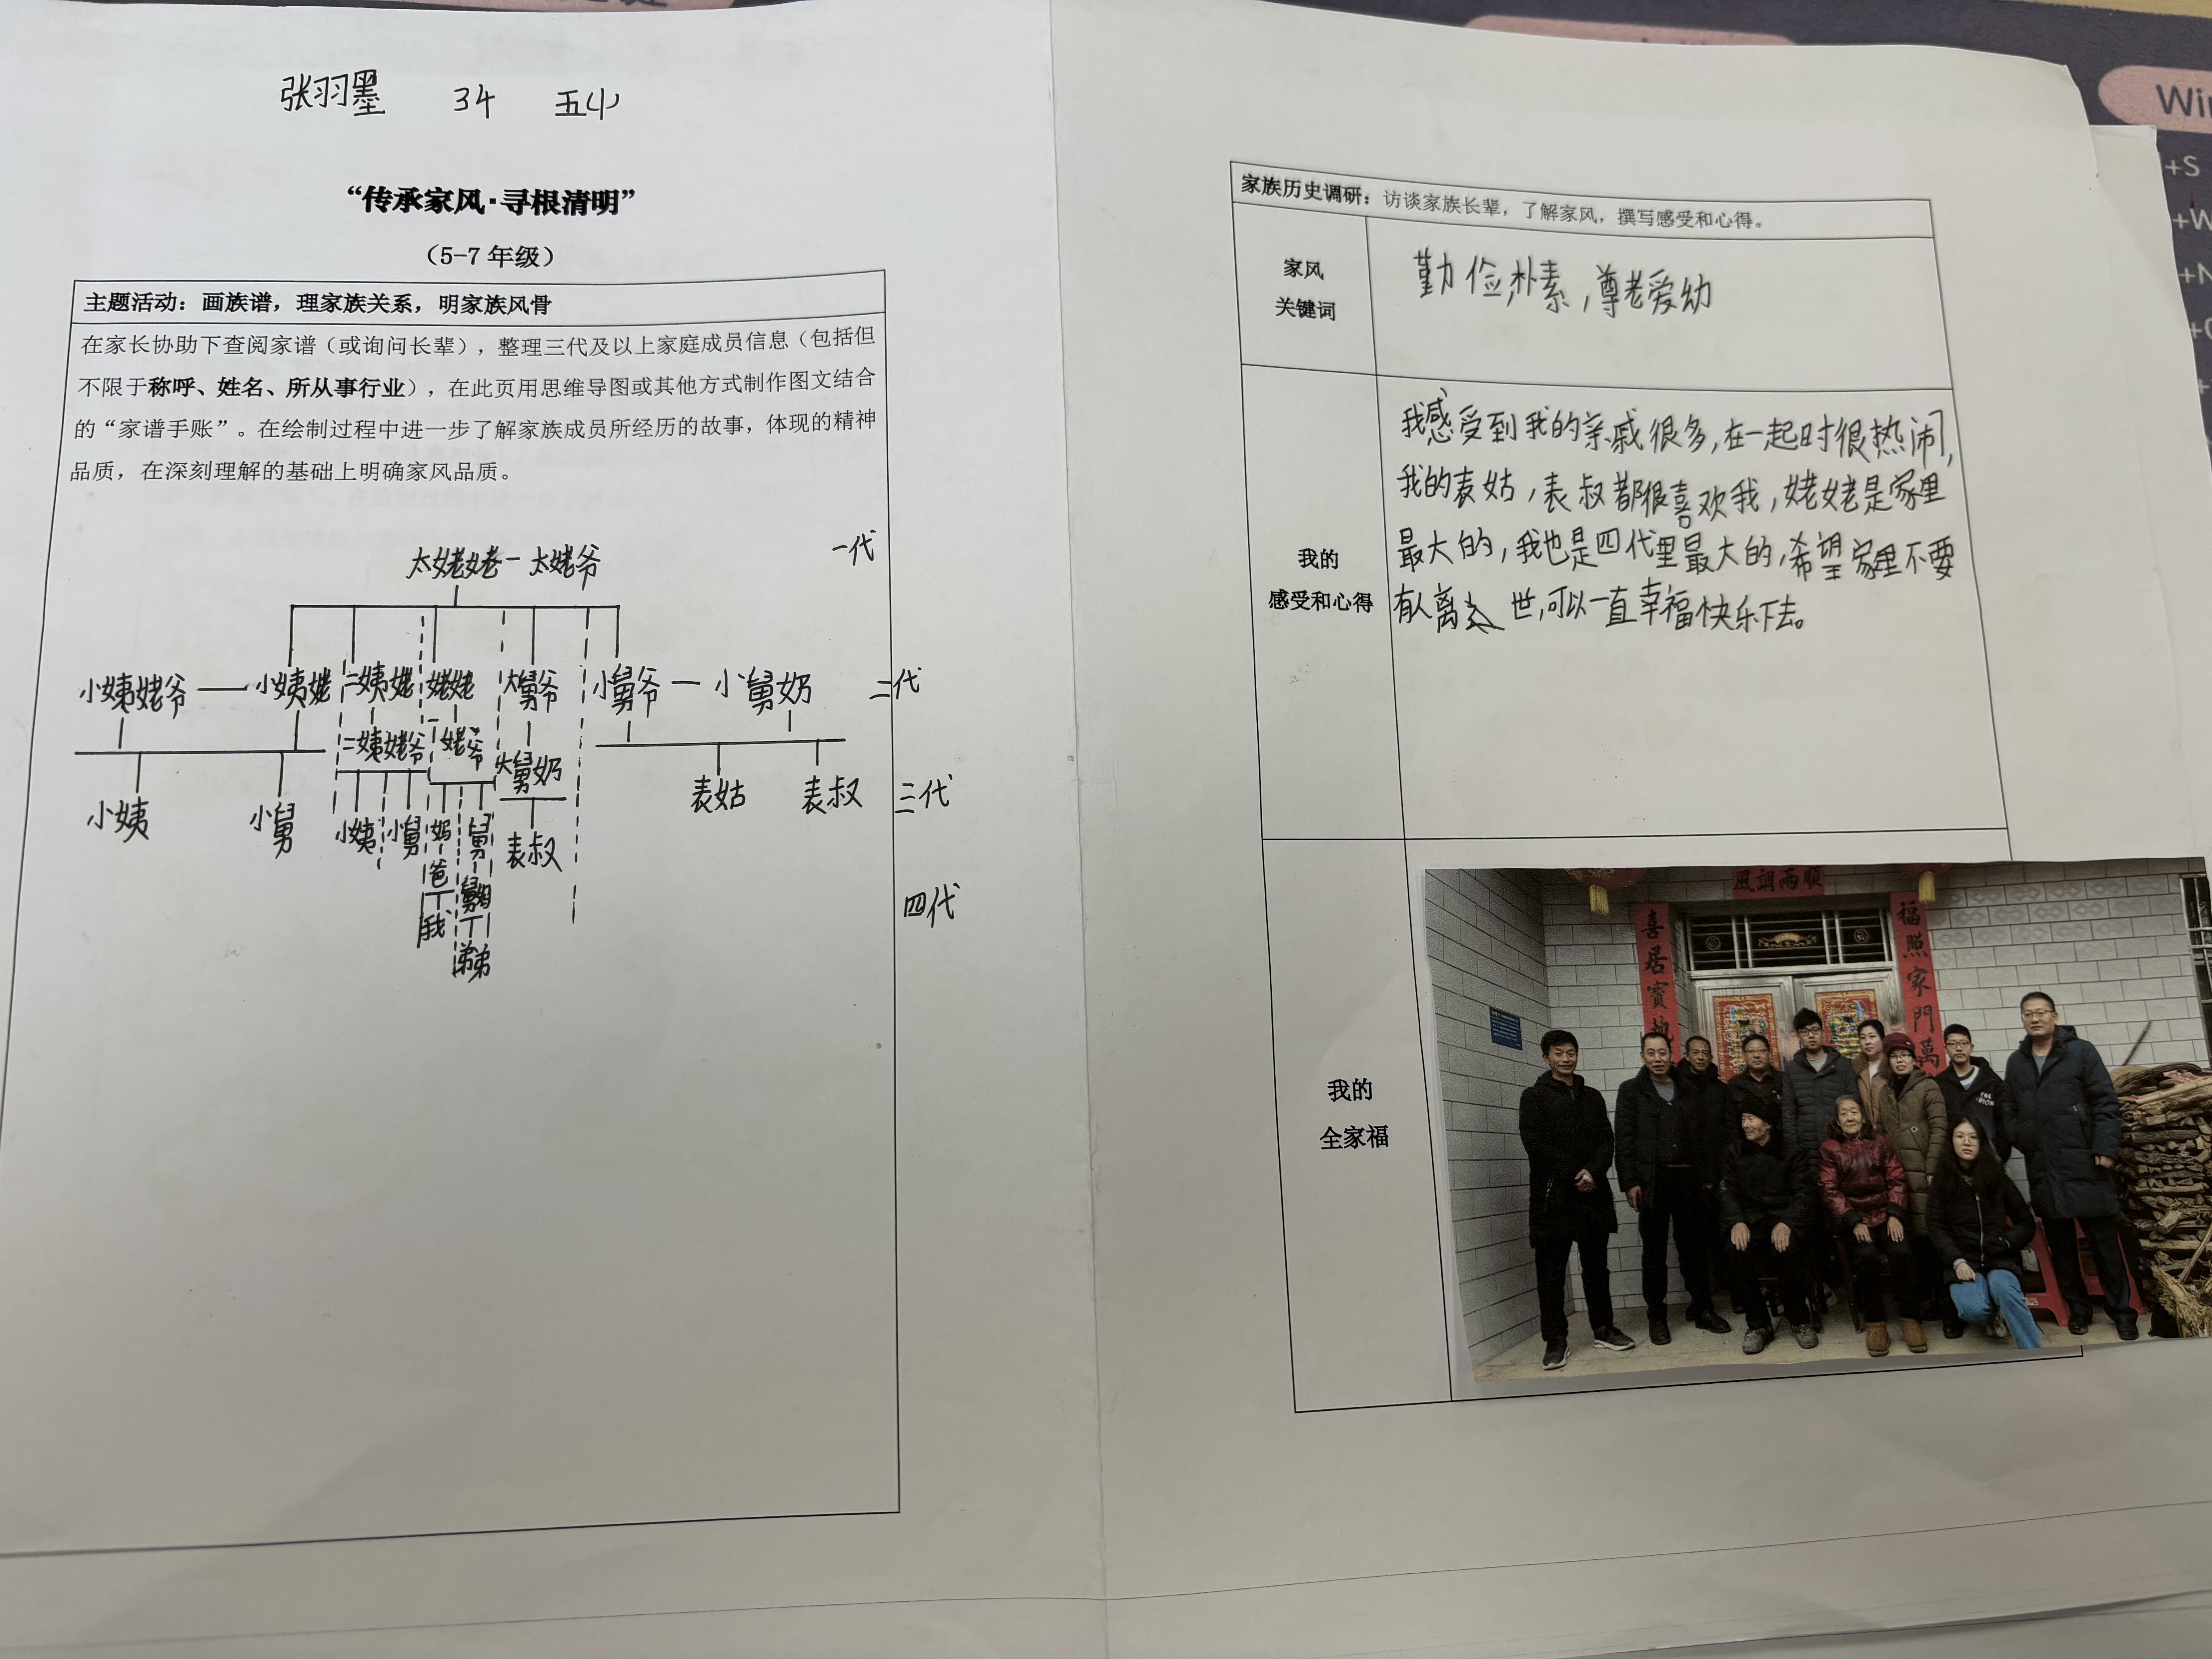 张羽墨 34 五小
“传承家风·寻根清明”
（5-7 年级）
主题活动：画族谱，理家族关系，明家族风骨
在家长协助下查阅家谱（或询问长辈），整理三代及以上家庭成员信息（包括但
不限于称呼、姓名、所从事行业），在此页用思维导图或其他方式制作图文结合
的“家谱手账”。在绘制过程中进一步了解家族成员所经历的故事，体现的精神
品质，在深刻理解的基础上明确家风品质。
太姥姥 太姥爷 一代
小姨姥爷 小姨姥 二姨姥 姥姥 大舅爷 小舅爷 小舅奶 二代
二姨姥爷 姥爷 大舅奶
小姨 小舅 小姨 小舅 妈 舅 表叔 表姑 表叔 三代
爸 舅妈
我 弟弟 四代
家族历史调研：访谈家族长辈，了解家风，撰写感受和心得。
家风
关键词
勤俭朴素，尊老爱幼
我的
感受和心得
我感受到我的亲戚很多，在一起时很热闹，
我的表姑，表叔都很喜欢我，姥姥是家里
最大的，我也是四代里最大的，希望家里不要
有人离去世，可以一直幸福快乐下去。
我的
全家福
風調雨順
喜居寶地
福照家門萬
Win
+S
+W
+N